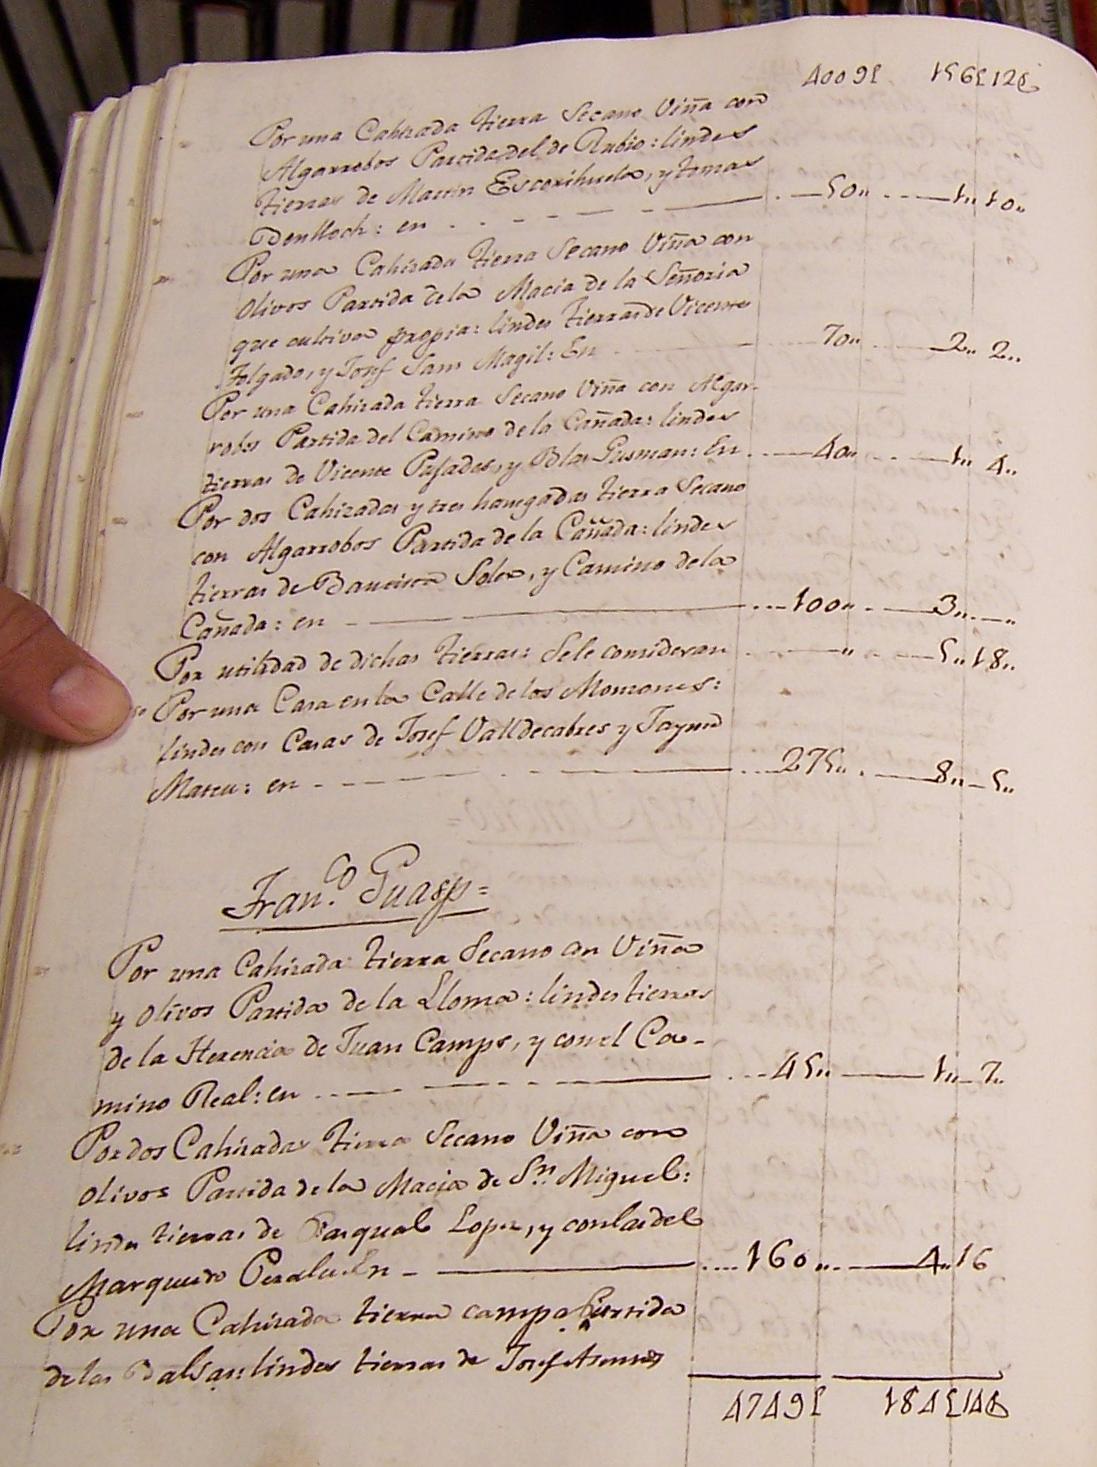 4006£ 156£12
Por una Cahizada tierra Secano Viña con
Algarrobos Partida del de Rubio: lindes
tierras de Martin Escorihuela, y tomas
Benlloch: en 50,, 1,, 10,,
Por una Cahizada tierra Secano Viña con
Olivos Partida dela Macia de la Señoria
que cultiva propia: lindes tierras de Vicente
Folgado, y Josef Sanz Magil: En 70,, 2,, 2,,
Por una Cahizada tierra Secano Viña con Algar-
robos Partida del Camino de la Cañada: lindes
tierras de Vicente Pasadas, y Blas Gusman: En 40,, 1,, 4,,
Por dos Cahizadas y tres hanegadas tierra Secano
con Algarrobos Partida de la Cañada: lindes
tierras de Bautista Soler, y Camino dela
Cañada: en 100,, 3,, ,,
Por utilidad de dichas tierras: Sele consideran ,, 5,, 18,,
Por una Casa en la Calle de los
lindes con Casas de Josef Valldecabres y Jayme
Mateu: en 275,, 8,, 5,,
Fran.co Guasp=
Por una Cahizada tierra Secano con Viña
y Olivos Partida de la Lloma: lindes tierras
de la Herencia de Juan Camps, y con el Ca-
mino Real: en 45,, 1,, 7,,
Por dos Cahizadas tierra Secano Viña con
Olivos Partida de la Macia de Sn. Miguel:
lindes tierras de Pasqual Lopez, y con las del
Marques de En 160,, 4,, 16
Por una Cahizada tierra campa Partida
de las Balsas: lindes tierras de Josef
4746£ 184£14